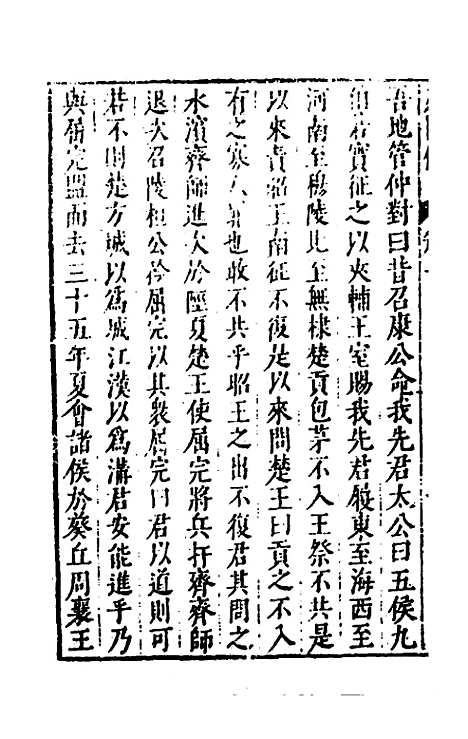 吾地管仲對曰昔召康公命我先君太公曰五侯九
伯若實征之以夾輔王室賜我先君履東至海西至
河南至穆陵北至無棣楚貢包茅不入王祭不共是
以來責昭王南征不復是以來問楚王曰貢之不入
有之寡人罪也敢不共乎昭王之出不復君其問之
水濱齊師進次於陘夏楚王使屈完將兵扞齊齊師
退次召陵桓公矜屈完以其衆屈完曰君以道則可
若不則楚方城以爲城江漢以爲溝君安能進乎乃
與屈完盟而去三十五年夏會諸侯於葵丘周襄王